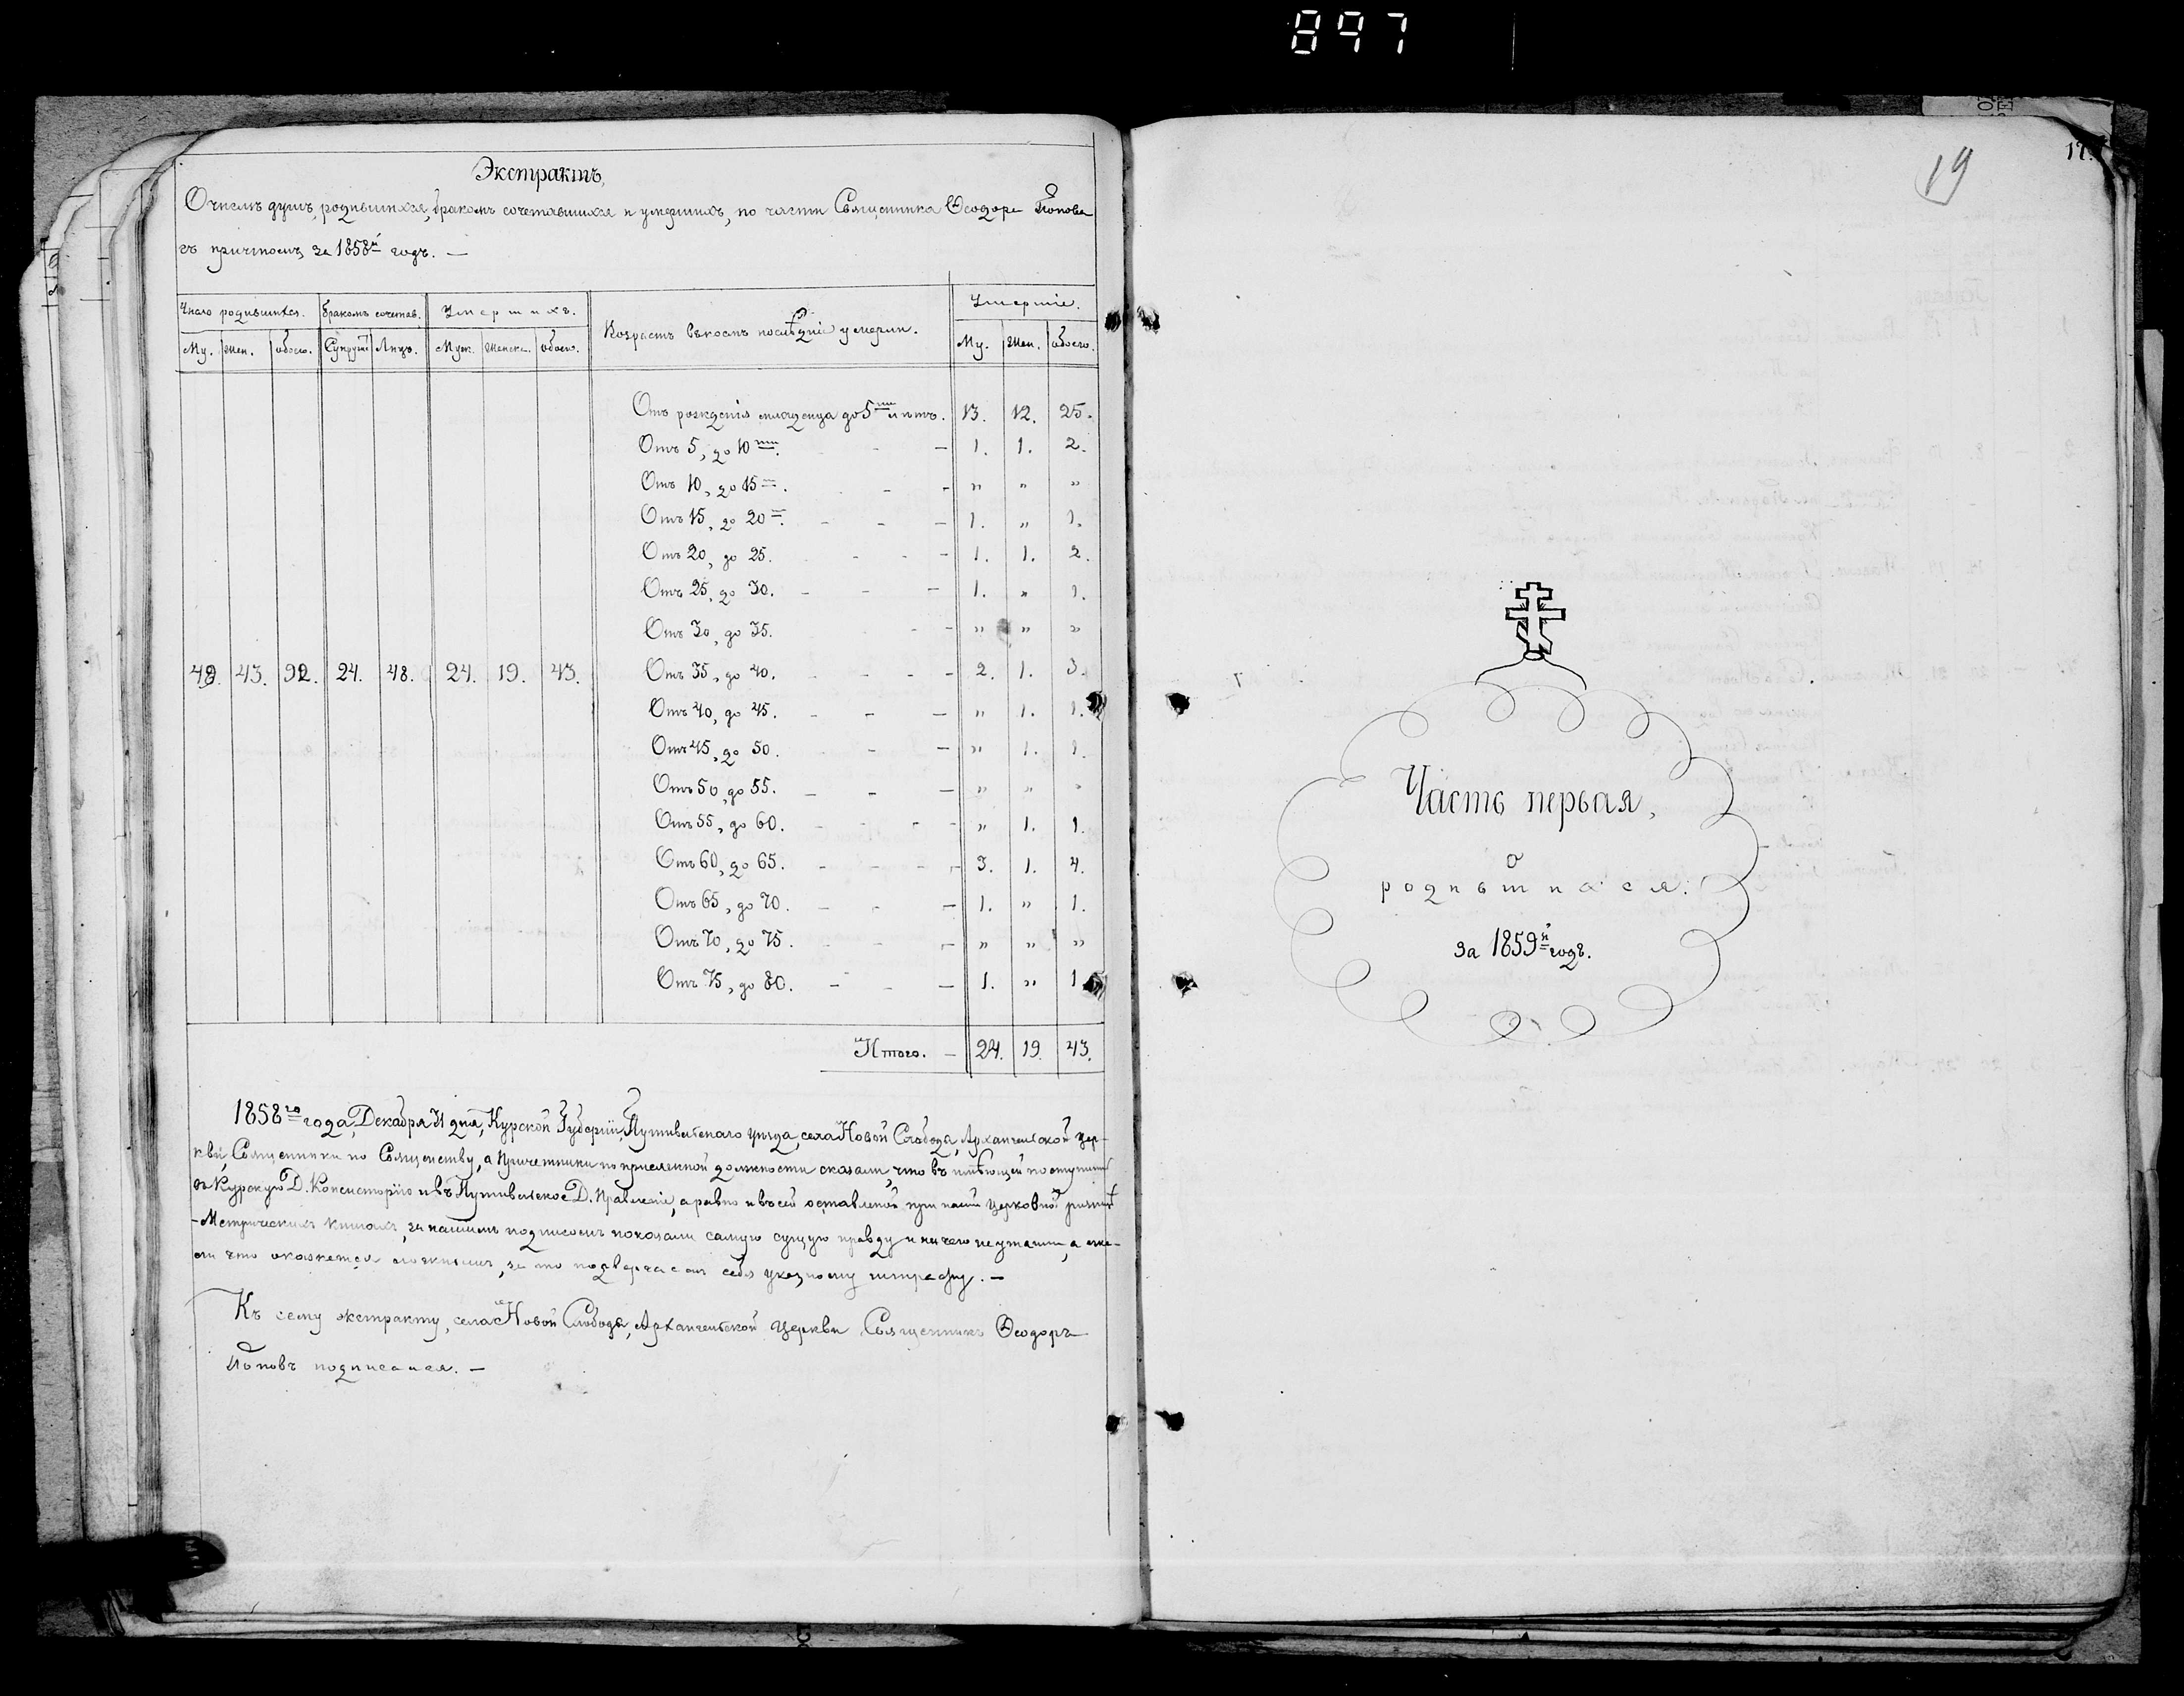 897
Экстрактъ,
О числѣ душъ, родившихся, бракомъ сочетавшихся и умершихъ, по части Священника Ѳеодора Попова
съ причтомъ, за 1858й годъ. —
Число родившихся. Бракомъ сочетав. Умершихъ. Возрастъ въ коемъ послѣдніе умерли. Умершіе.
Му. Жен. обоего. Супруж. Лицъ. Муж. Женска. обоего. Му. Жен. обоего.
Отъ рожденія младенца до 5ти лѣтъ. 13. 12. 25.
Отъ 5, до 10ти. — 1. 1. 2.
Отъ 10, до 15ти. - - „ „ „
Отъ 15, до 20ти. - - — 1. „ 1.
Отъ 20, до 25. - - - 1. 1. 2.
Отъ 25, до 30. - - — 1. „ 1.
Отъ 30, до 35. - - „ „ „
49. 43. 92. 24. 48. 24. 19. 43. Отъ 35, до 40. - - - - 2. 1. 3.
Отъ 40, до 45. - - — „ 1. 1.
Отъ 45, до 50. - — „ 1. 1.
Отъ 50, до 55. — - — „ „ „
Отъ 55, до 60. - - - - „ 1. 1.
Отъ 60, до 65. - - - - 3. 1. 4.
Отъ 65, до 70. - - — 1. „ 1.
Отъ 70, до 75. - - - „ „ „
Отъ 75, до 80. - - — 1. „ 1
Итого. — 24. 19. 43.
1858го года, Декабря 31 дня, Курской Губерніи, Путивльскаго уѣзда, села Новой Слободы, Архангельской цер-
кви, Священники по Священству, а Причетники по присяжной должности сказали, что въ имѣющей поступить
въ Курскую Д. Консисторію и въ Путивльское Д. Правленіе, а равно и въ сей оставленой при нашей церковной ризницѣ
-Метрическихъ книгахъ, за нашимъ подписомъ показали самую сущую правду и ничего не утаили, а еже-
ли что окажется ложнымъ, за то подвергаемъ себя указному штрафу. —
Къ сему экстракту, села Новой Слободы, Архангельской церкви Священникъ Ѳеодоръ
Поповъ подписался. —
19
17.
Часть первая,
о
родившихся.
за 1859й годъ.